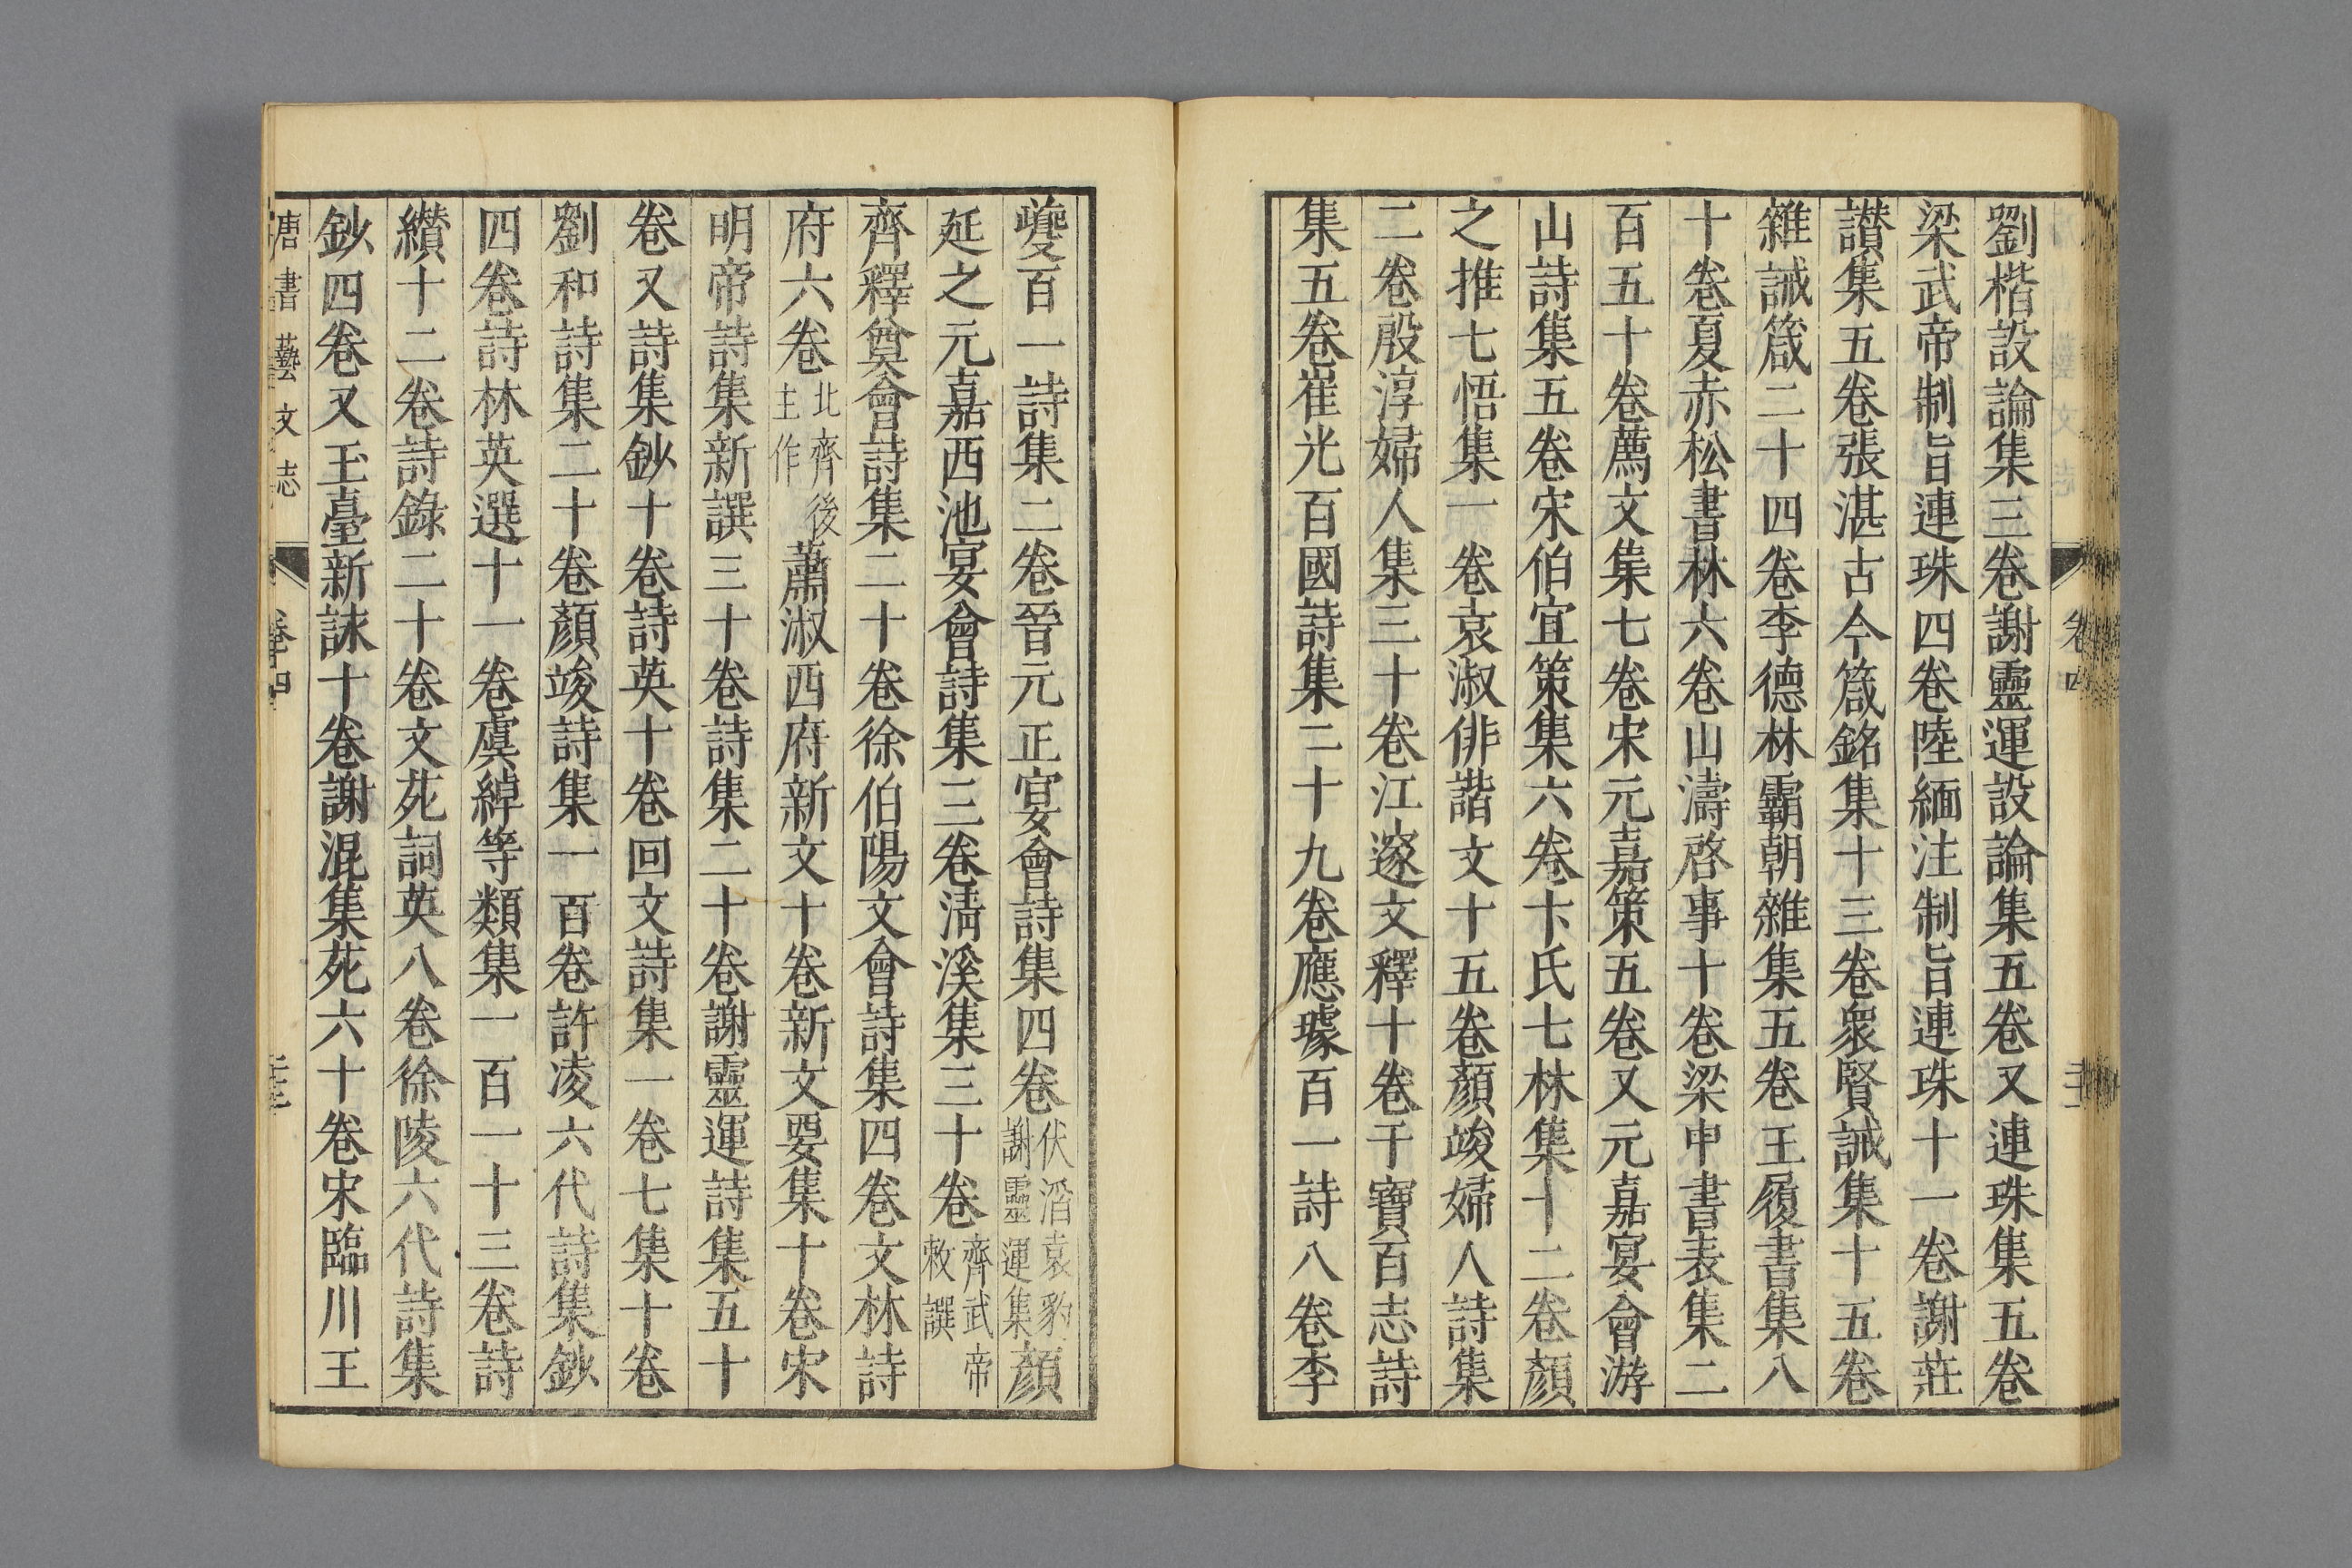 劉楷設論集三卷謝靈運設論集五卷又連珠集五卷
梁武帝制旨連珠四卷陸緬注制旨連珠十一卷謝莊
讃集五卷張湛古今箴銘集十三卷衆賢誡集十五卷
雜誡箴二十四卷李德林霸朝雜集五卷王履書集八
十卷夏赤松書林六卷山濤啓事十卷梁中書表集二
百五十卷薦文集七卷宋元嘉策五卷又元嘉宴會游
山詩集五卷宋伯宜策集六卷卞氏七林集十二卷顏
之推七悟集一卷袁淑俳諧文十五卷顏竣婦人詩集
二卷殷淳婦人集三十卷江邃文釋十卷干寶百志詩
集五卷崔光百國詩集二十九卷應璩百一詩八卷李
夔百一詩集二卷晉元正宴會詩集四卷伏滔袁豹謝靈運集顏
延之元嘉西池宴會詩集三卷淸溪集三十卷齊武帝敕譔
齊釋奠會詩集二十卷徐伯陽文會詩集四卷文林詩
府六卷北齊後主作蕭淑西府新文十卷新文要集十卷宋
明帝詩集新譔三十卷詩集二十卷謝靈運詩集五十
卷又詩集鈔十卷詩英十卷回文詩集一卷七集十卷
劉和詩集二十卷顏竣詩集一百卷許凌六代詩集鈔
四卷詩林英選十一卷虞綽等類集一百一十三卷詩
纘十二卷詩錄二十卷文苑詞英八卷徐陵六代詩集
鈔四卷又玉臺新詠十卷謝混集苑六十卷宋臨川王
唐書藝文志 卷四